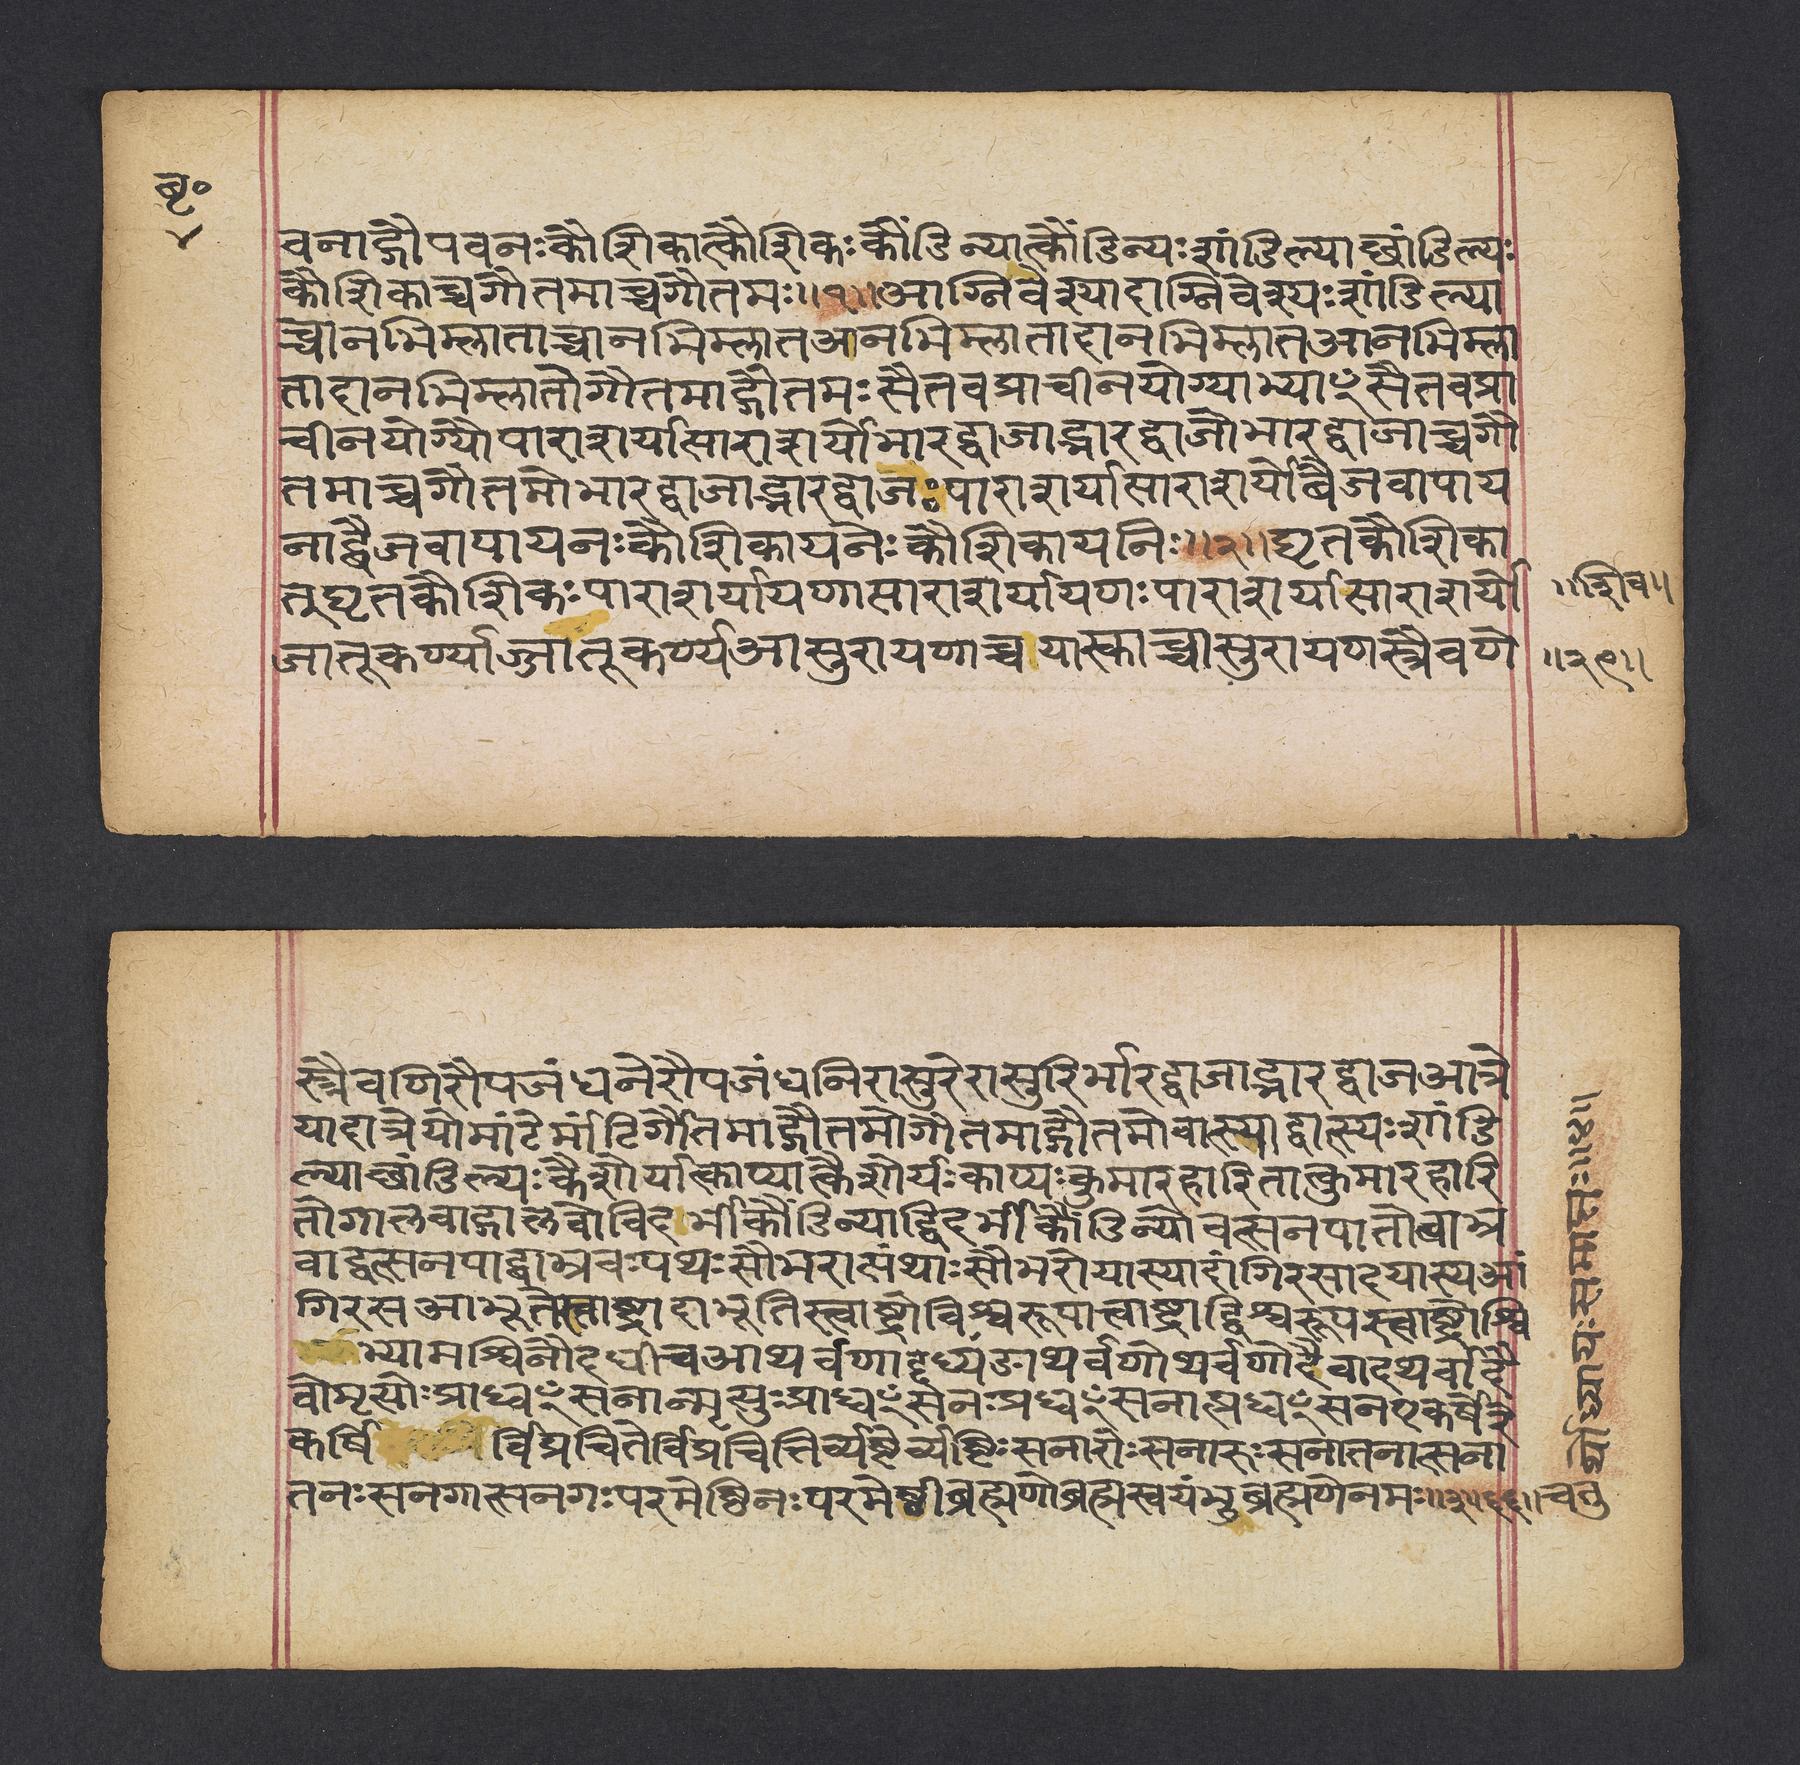 बृ॰
४
वनाद्गौपवनःकौशिकात्कौशिकःकौंडिन्यात्कौंडिन्यःशांडिल्याछांडिल्यः
कौशिकाच्चगौतमाच्चगौतमः॥१॥आग्निवेश्यादाग्निवेश्यःशांडिल्या
च्चानभिम्लाताच्चानभिम्लातआनभिम्लातादानभिम्लातआनभिम्ला
तादानभिम्लातोगौतमाद्गौतमःसैतवप्राचीनयोग्याभ्याꣳसैतवप्रा
चीनयोग्यौपाराशर्यात्पाराशर्योभारद्वाजाद्भारद्वाजोभारद्वाजाच्चगौ
तमाच्चगौतमोभारद्वाजाद्भारद्वाजःपाराशर्यात्पाराशर्योबैजवापाय
नाद्बैजवापायनःकौशिकायनेःकौशिकायनिः॥२॥घृतकौशिका
त्घृतकौशिकःपाराशर्यायणात्पाराशर्यायणःपाराशर्यात्पाराशर्यो
जातूकर्ण्याज्जातूकर्ण्यआसुरायणाच्चयास्काच्चासुरायणस्त्रैवणे
॥शिव॥
॥२९॥
स्त्रैवणिरौपजंधनेरौपजंधनिरासुरेरासुरिर्भारद्वाजाद्भारद्वाजआत्रे
यादात्रेयोमांटेर्मांटिर्गौतमाद्गौतमोगौतमाद्गौतमोवात्स्याद्वात्स्यःशांडि
ल्याछांडिल्यःकैशोर्यात्काप्यात्कैशोर्यःकाप्यःकुमारहारितात्कुमारहारि
तोगालवाद्गालवोविदर्भीकौंडिन्याद्विदर्भीकौंडिन्योवत्सनपातोबाभ्र
वाद्वत्सनपाद्बाभ्रवःपथःसौभरात्पंथाःसौभरोयास्यादांगिरसादयास्यआं
गिरसआभूतेस्त्वाष्ट्रादाभूतिस्त्वाष्ट्रोविश्वरूपात्त्वाष्ट्राद्विश्वरूपस्त्वाष्ट्रोश्वि
भ्यामश्विनौदधीचआथर्वणाद्दध्यङाथर्वणोथर्वणोदैवादथर्वादै
वोमृत्योःप्राध्वꣳसनान्मृत्युःप्राध्वꣳसनःप्रध्वꣳसनात्प्रध्वꣳसनएकर्षेरे
कर्षि र्विप्रचित्तेर्विप्रचित्तिर्व्यष्टेर्व्यष्टिःसनारोःसनारुःसनातनात्सना
तनःसनगात्सनगःपरमेष्ठिनःपरमेष्ठीब्रह्मणोब्रह्मस्वयंभुब्रह्मणेनमः॥३॥६॥चतु
र्थोध्यायःसमाप्तः॥४॥